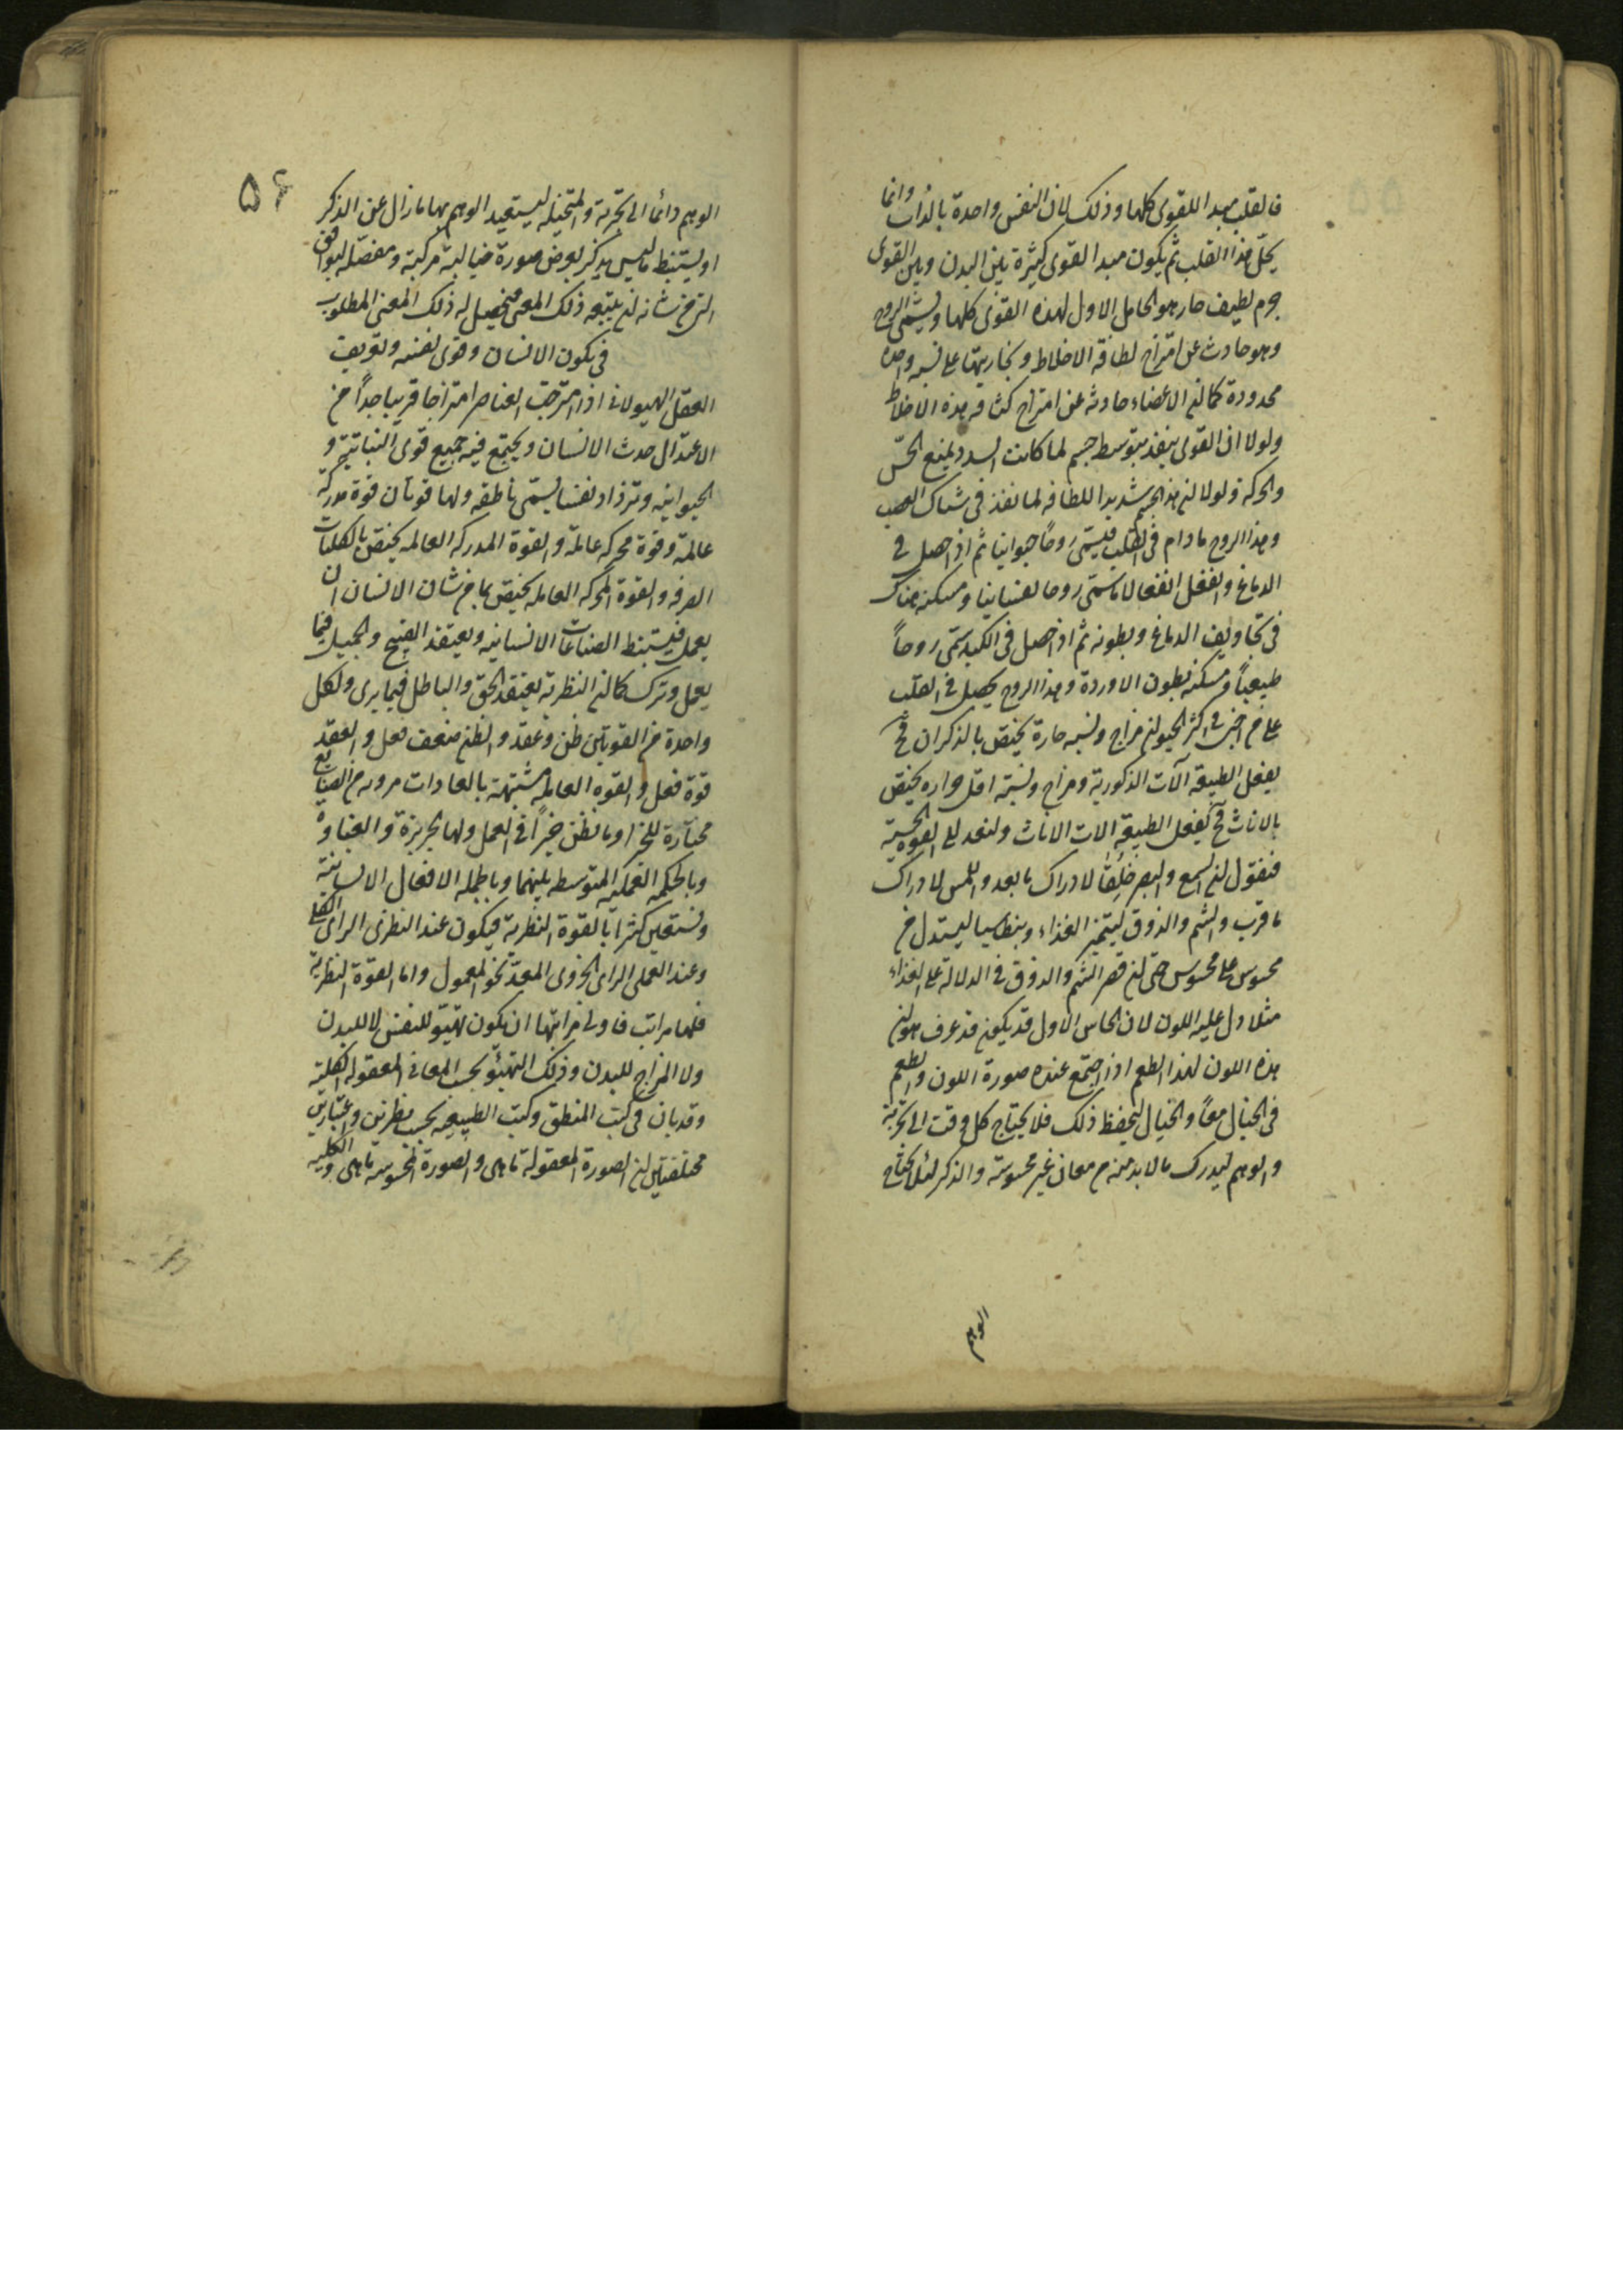 فالقلب مبدا للقوى كلها وذلك لان النفس واحدة بالذات وانما
يحل هذا القلب ثم يكون مبدا لقوى كثيرة بين البدن وبين القوى
جرم لطيف حار هو الحامل الاول لهذه القوى كلها ويسمى الروح
وهو حادث عن امتزاج لطافة الاخلاط وبخاريتها على نسبه واحده
محدودة كما ان الاعضاء حادثه عن امتزاج كثافه هذه الاخلاط
ولولا ان القوى ينفذ بتوسط جسم لما كانت السدد يمنع الحس
والحركه ولولا ان هذا الجسم شديد اللطافه لما نفذ فى شباك العصب
وهذا الروح ما دام فى القلب فيسمى روحاً حيوانيا ثم اذا حصل فى
الدماغ وانفعل انفعالا ما سمى روحا نفسانيا ومسكنه هناك
فى تجاويف الدماغ وبطونه ثم اذا حصل فى الكبد سمى روحاً
طبيعياً ومسكنه بطون الاوردة وهذا الروح يحصل فى القلب
على مزاجين فى اكثر الحيوان مزاج ونسبه حارة يختص بالذكران فح
يفعل الطبيعه آلات الذكورية ومزاج ونسبته اقل حراره يختص
بالاناث فح يفعل الطبيعه الات الاناث ولنعد الى القوه الحسية
فنقول ان السمع والبصر خلقا لادراك ما بعد واللمس لادراك
ما قرب والشم والذوق ليتميز الغذاء وبنطاسيا ليستدل من
محسوس على محسوس حتى ان قصر الشم والذوق فى الدلالة على الغذاء
مثلا دل عليه اللون لان الحاس الاول قد يكون قد عرف هو ان
هذه اللون لهذا الطعم اذا اجتمع عنده صورة اللون والطعم
فى الخيال معاً والخيال ليحفظ ذلك فلا يحتاج كل وقت الى تجربة
والوهم ليدرك ما لا بد منه من معان غير محسوسة والذكر لئلا يحتاج
الوهم
٥٦
الوهم دائما الى تجربة والمتخيله ليستعيد الوهم بها ما زال عن الذكر
او يستنبط ما ليس يذكر بعرض صورة خيالية مركبة ومفصله ليوافق
التى من شانه ان يتبعه ذلك المعنى فيحصل له ذلك المعنى المطلوب
فى تكون الانسان وقوى نفسه وتعريف
العقل الهيولانى اذا امتزجت العناصر امتزاجا قريبا جداً من
الاعتدال حدث الانسان ويجتمع فيه جميع قوى النباتية و
الحيوانيه وتزداد نفسا يسمى ناطقه ولها قوتان قوة مدركه
عالمة وقوة محركه عاملة والقوة المدركه العالمه يختص بالكليات
الصرفه والقوة المحركه العامله يختص بما من شان الانسان ان
يعمل فيستنبط الصناعات الانسانيه ويعتقد القبيح والجميل فيما
يعمل وترك كما ان النظرية يعتقد الحق والباطل فيما يرى ولكل
واحدة من القوتين ظن وعقد والظن ضعف فعل والعقد
قوة فعل والقوه العامله مشتبهة بالعادات مرويه من الصنائع
مختارة للخير او ما يظن خيراً فى العمل ولها الجربزة والغباوه
وبالحكمه العمليه المتوسطه بينهما وبالجمله الافعال الانسانية
وتستعين كثيرا بالقوة النظرية فيكون عند النظرى الراى الكلى
وعند العملى الراى الجزوى المعد نحو المعمول واما القوة النظرية
فلها مراتب فاولى مراتبها ان يكون تهيؤ للنفس لا للبدن
ولا المزاج للبدن وذلك التهيؤ بحسب المعانى المعقوله الكلية
وقد بان فى كتب المنطق وكتب الطبيعه بحسب نظرين واعتبارين
مختلفتين ان الصورة المعقولة ما هى والصورة المحسوسه ما هى والكليه